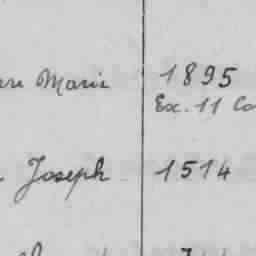 Marie 1895
Ex. 11
Joseph 1514